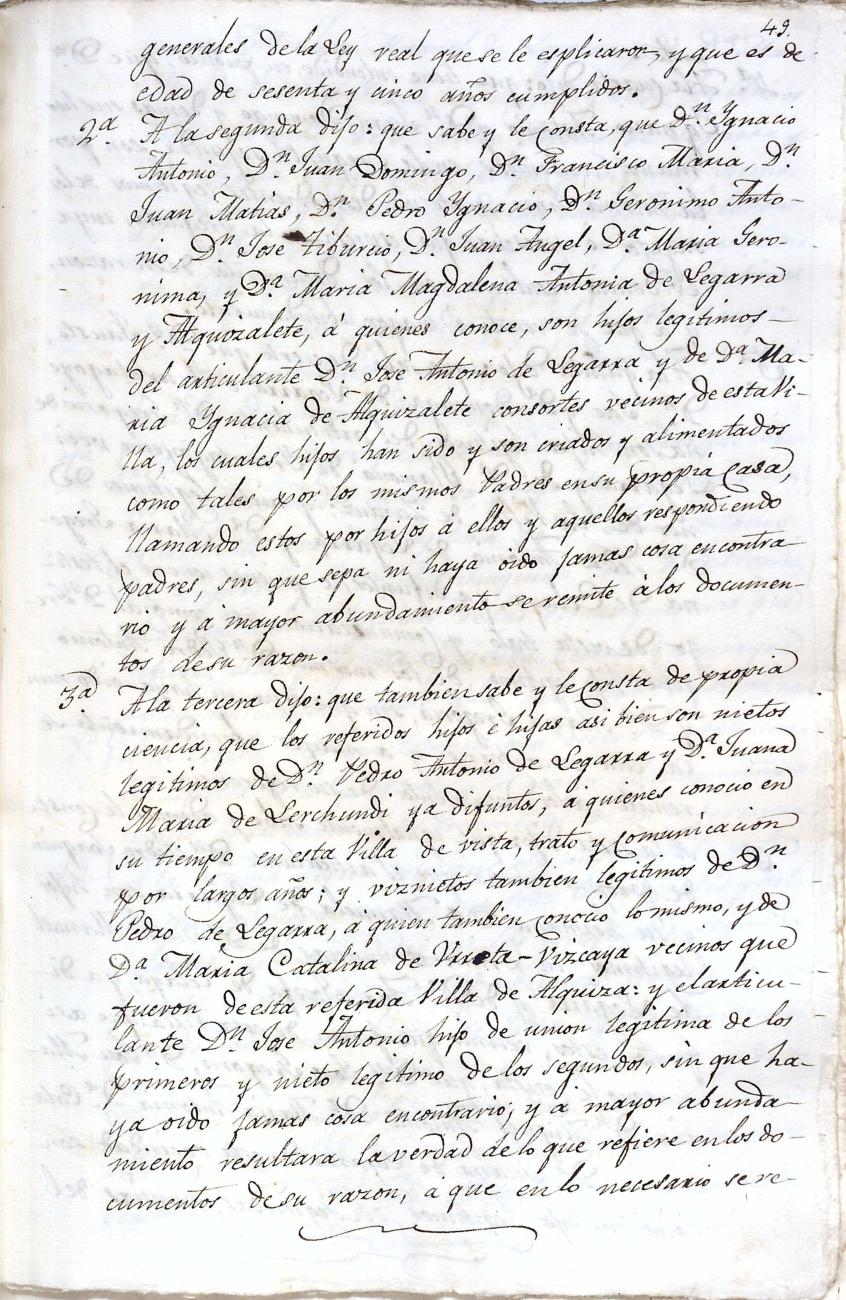 49.
generales de la Ley real que se le esplicaron, y que es de
edad de sesenta y cinco años cumplidos.
2ª A la segunda dijo: que sabe y le consta, que Dn. Ygnacio
Antonio, Dn. Juan Domingo, Dn. Francisco Maria, Dn.
Juan Matias, Dn. Pedro Ygnacio, Dn. Geronimo Anto-
nio, Dn. Jose Tiburcio, Dn. Juan Angel, Da. Maria Gero-
nima, y Da. Maria Magdalena Antonia de Legarra
y Alquizalete, á quienes conoce, son hijos legitimos
del articulante Dn. Jose Antonio de Legarra y de Da. Ma-
ria Ygnacia de Alquizalete consortes vecinos de esta Vi-
lla, los cuales hijos han sido y son criados y alimentados
como tales por los mismos Padres en su propia Casa,
llamando estos por hijos á ellos y aquellos respondiendo
padres, sin que sepa ni haya oido jamas cosa en contra-
rio y á mayor abundamiento se remite á los documen-
tos de su razon.
3ª A la tercera dijo: que tambien sabe y le consta de propia
ciencia, que los referidos hijos é hijas asi bien son nietos
legitimos de Dn. Pedro Antonio de Legarra y Da. Juana
Maria de Lerchundi ya difuntos, á quienes conocio en
su tiempo en esta Villa de vista, trato y comunicacion
por largos años; y viznietos tambien legitimos de Dn.
Pedro de Legarra, á quien tambien conocio lo mismo, y de
Da. Maria Catalina de Urreta-Vizcaya vecinos que
fueron de esta referida Villa de Alquiza: y el articu-
lante Dn. Jose Antonio hijo de union legitima de los
primeros y nieto legitimo de los segundos, sin que ha-
ya oido jamas cosa en contrario; y á mayor abunda-
miento resultara la verdad de lo que refiere en los do-
cumentos de su razon, á que en lo necesario se re-